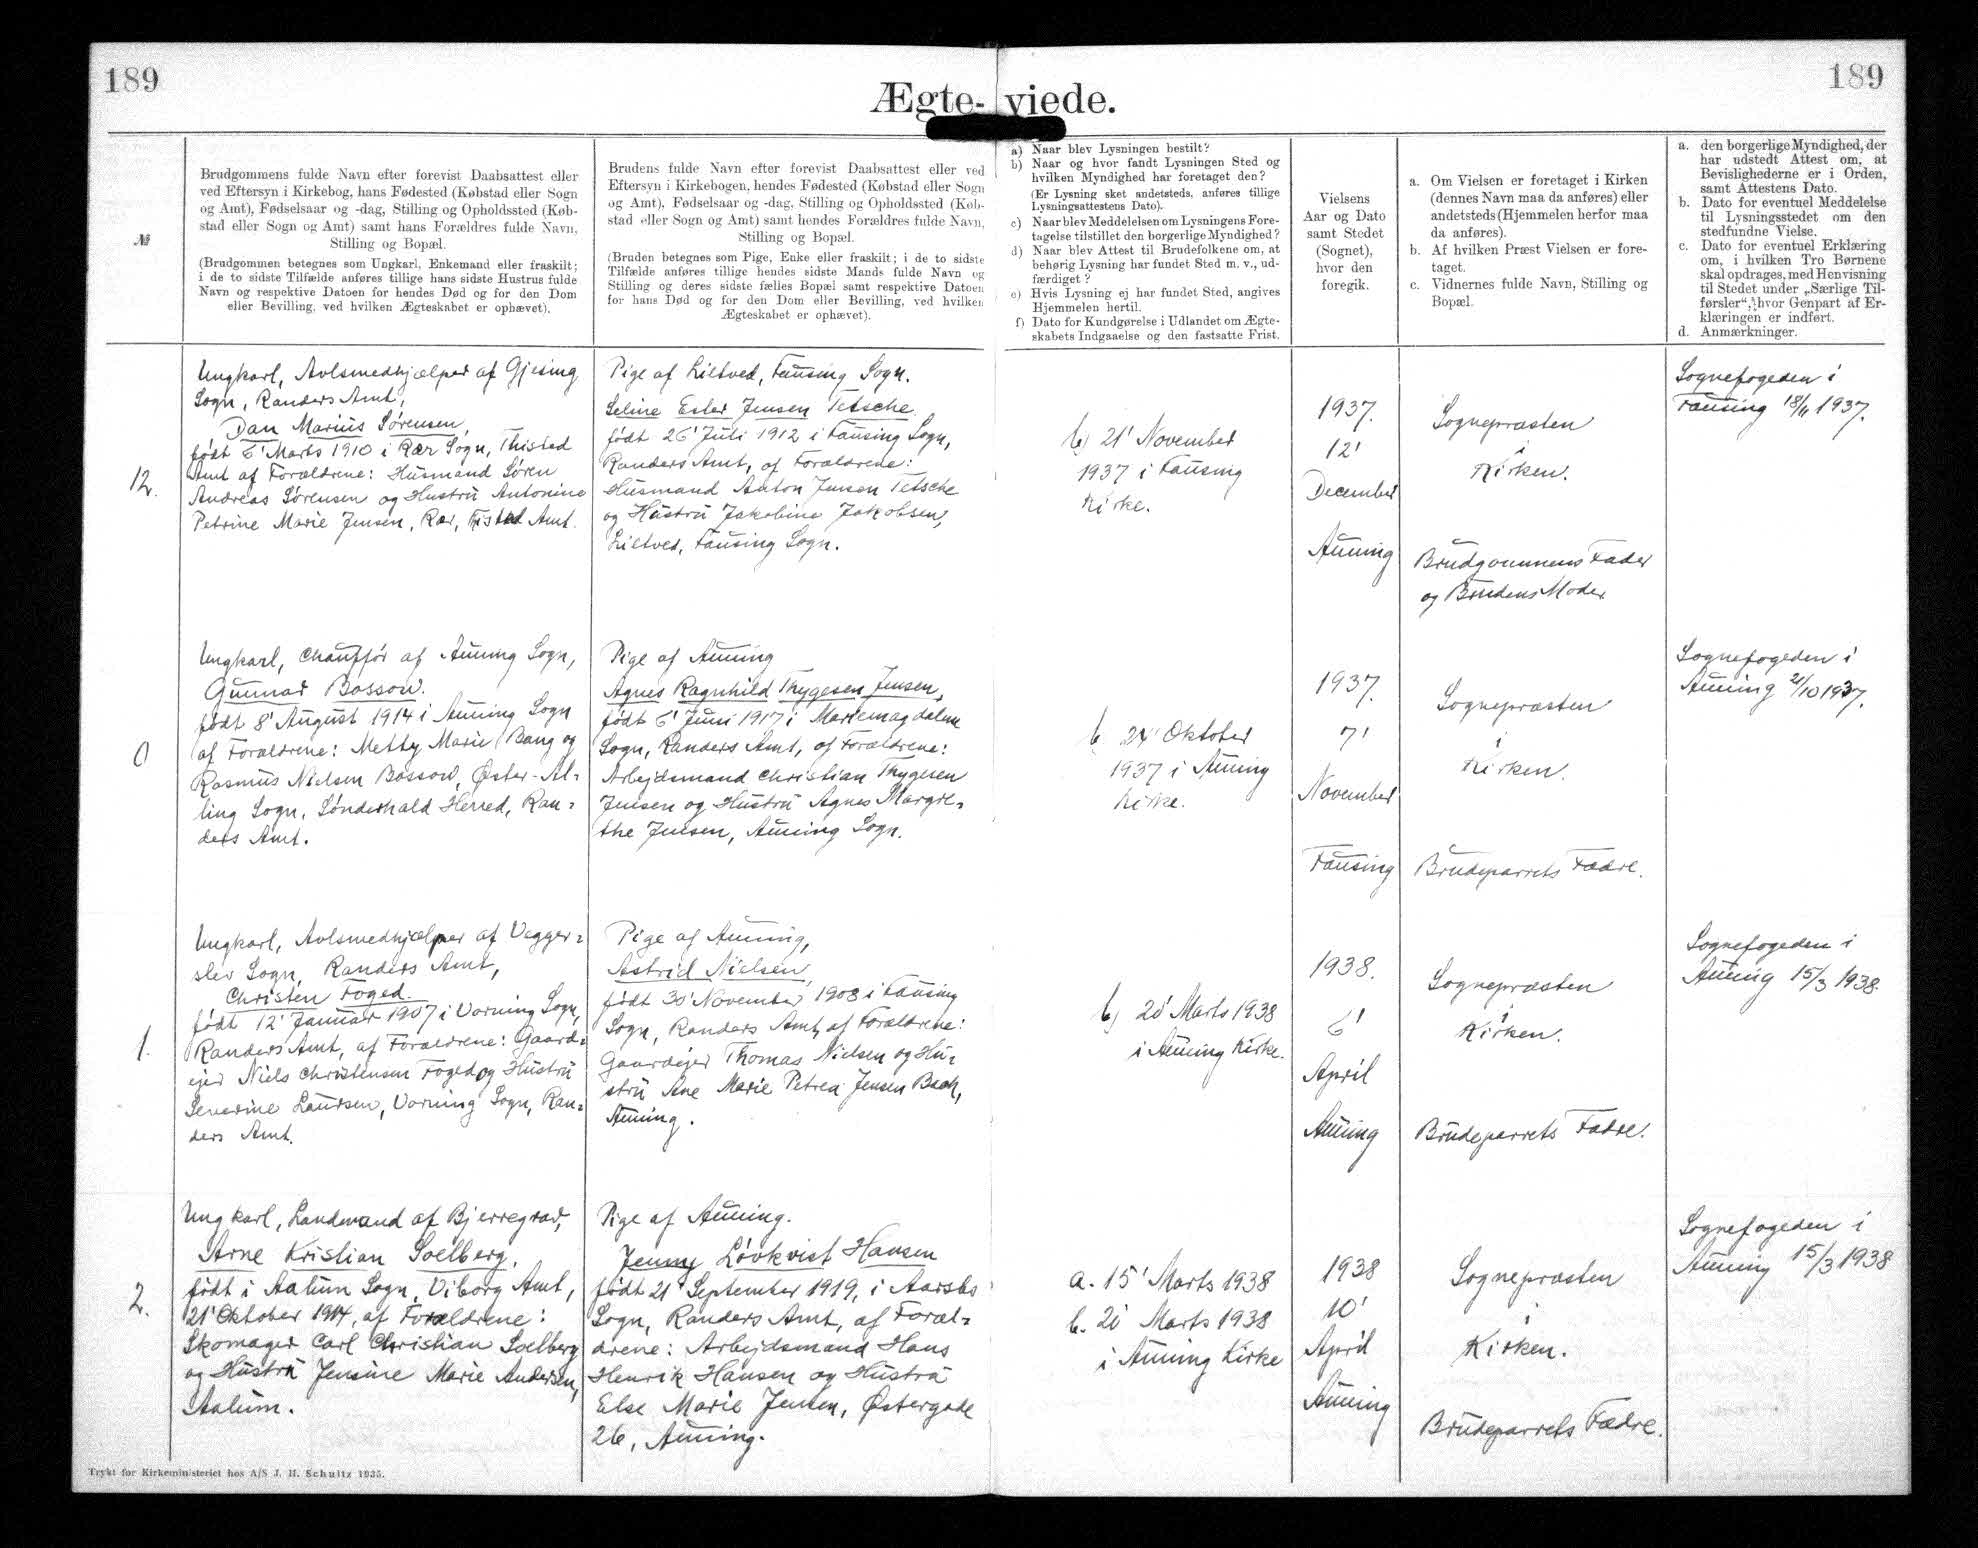 189
189
Ægte- viede.
№
Brudgommens fulde Navn efter forevist Daabsattest eller
ved Eftersyn i Kirkebog, hans Fødested (Købstad eller Sogn
og Amt), Fødselsaar og -dag, Stilling og Opholdssted (Køb-
stad eller Sogn og Amt) samt hans Forældres fulde Navn,
Stilling og Bopæl.
(Brudgommen betegnes som Ungkarl, Enkemand eller fraskilt;
i de to sidste Tilfælde anføres tillige hans sidste Hustrus fulde
Navn og respektive Datoen for hendes Død og for den Dom
eller Bevilling, ved hvilken Ægteskabet er ophævet).
Brudens fulde Navn efter forevist Daabsattest eller ved
Eftersyn i Kirkebogen, hendes Fødested (Købstad eller Sogn
og Amt), Fødselsaar og -dag, Stilling og Opholdssted (Køb-
stad eller Sogn og Amt) samt hendes Forældres fulde Navn,
Stilling og Bopæl.
(Bruden betegnes som Pige, Enke eller fraskilt; i de to sidste
Tilfælde anføres tillige hendes sidste Mands fulde Navn og
Stilling og deres sidste fælles Bopæl samt respektive Datoen
for hans Død og for den Dom eller Bevilling, ved hvilken
Ægteskabet er ophævet).
a) Naar blev Lysningen bestilt?
b) Naar og hvor fandt Lysningen Sted og
hvilken Myndighed har foretaget den?
(Er Lysning sket andetsteds, anføres tillige
Lysningsattestens Dato).
c) Naar blev Meddelelsen om Lysningens Fore-
tagelse tilstillet den borgerlige Myndighed?
d) Naar blev Attest til Brudefolkene om, at
behørig Lysning har fundet Sted m. v., ud-
færdiget?
e) Hvis Lysning ej har fundet Sted, angives
Hjemmelen hertil.
f) Dato for Kundgørelse i Udlandet om Ægte-
skabets Indgaaelse og den fastsatte Frist.
Vielsens
Aar og Dato
samt Stedet
(Sognet),
hvor den
foregik.
a. Om Vielsen er foretaget i Kirken
(dennes Navn maa da anføres) eller
andetsteds (Hjemmelen herfor maa
da anføres).
b. Af hvilken Præst Vielsen er fore-
taget.
c. Vidnernes fulde Navn, Stilling og
Bopæl.
a. den borgerlige Myndighed, der
har udstedt Attest om, at
Bevislighederne er i Orden,
samt Attestens Dato.
b. Dato for eventuel Meddelelse
til Lysningsstedet om den
stedfundne Vielse.
c. Dato for eventuel Erklæring
om, i hvilken Tro Børnene
skal opdrages, med Henvisning
til Stedet under „Særlige Til-
førsler“, hvor Genpart af Er-
klæringen er indført.
d. Anmærkninger.
12.
Ungkarl, Avlsmedhjælper af Gjesing
Sogn, Randers Amt,
Dan Marius Sørensen,
født 6' Marts 1910 i Rær Sogn, Thisted
Amt af Forældrene: Husmand Søren
Andreas Sørensen og Hustru Antonine
Petrine Marie Jensen, Rær, Thisted Amt.
Pige af Liltved, Fausing Sogn.
Seline Ester Jensen Tetsche
født 26' Juli 1912 i Fausing Sogn,
Randers Amt, af Forældrene:
Husmand Anton Jensen Tetsche
og Hustru Jakobine Jakobsen,
Liltved, Fausing Sogn.
b) 21' November
1937 i Fausing
Kirke.
1937.
12'
December
Auning
Sognepræsten
i
Kirken.
Brudgommens Fader
og Brudens Moder
Sognefogeden i
Fausing 18/11 1937.
0
Ungkarl, Chauffør af Auning Sogn,
Gunnar Bossow.
født 8' August 1914 i Auning Sogn
af Forældrene: Metty Marie Bang og
Rasmus Nielsen Bossow, Øster-Al-
ling Sogn, Sønderhald Herred, Ran-
ders Amt.
Pige af Auning
Agnes Ragnhild Thygesen Jensen,
født 6' Juni 1917 i Mariemagdalene
Sogn, Randers Amt, af Forældrene:
Arbejdsmand Christian Thygesen
Jensen og Hustru Agnes Margre-
the Jensen, Auning Sogn.
b. 24' Oktober
1937 i Auning
Kirke.
1937.
7'
November
Fausing
Sognepræsten
i
Kirken.
Brudeparrets Fædre.
Sognefogeden i
Auning 21/10 1937.
1.
Ungkarl, Avlsmedhjælper af Vegger-
slev Sogn, Randers Amt,
Christen Foged.
født 12' Januar 1907 i Vorning Sogn,
Randers Amt, af Forældrene: Gaard-
ejer Niels Christensen Foged og Hustru
Severine Laursen, Vorning Sogn, Ran-
ders Amt.
Pige af Auning,
Astrid Nielsen,
født 30' November 1908 i Fausing
Sogn, Randers Amt, af Forældrene:
Gaardejer Thomas Nielsen og Hu-
stru Ane Marie Petrea Jensen Bach,
Auning.
b) 20' Marts 1938
i Auning Kirke.
1938.
6'
April
Auning
Sognepræsten
i
Kirken.
Brudeparrets Fædre.
Sognefogeden i
Auning 15/3 1938.
2.
Ungkarl, Landmand af Bjerregrav,
Arne Kristian Soelberg,
født i Aalum Sogn, Viborg Amt,
21' Oktober 1914, af Forældrene:
Skomager Carl Christian Soelberg
og Hustru Jensine Marie Andersen,
Aalum.
Pige af Auning.
Jenny Løvkvist Hansen
født 21' September 1919, i Aarslev
Sogn, Randers Amt, af Foræl-
drene: Arbejdsmand Hans
Henrik Hansen og Hustru
Else Marie Jensen, Østergade
26, Auning.
a. 15' Marts 1938
b. 20' Marts 1938
i Auning Kirke
1938
10'
April
Auning
Sognepræsten
i
Kirken.
Brudeparrets Fædre.
Sognefogeden i
Auning 15/3 1938
Trykt for Kirkeministeriet hos A/S J. H. Schultz 1935.